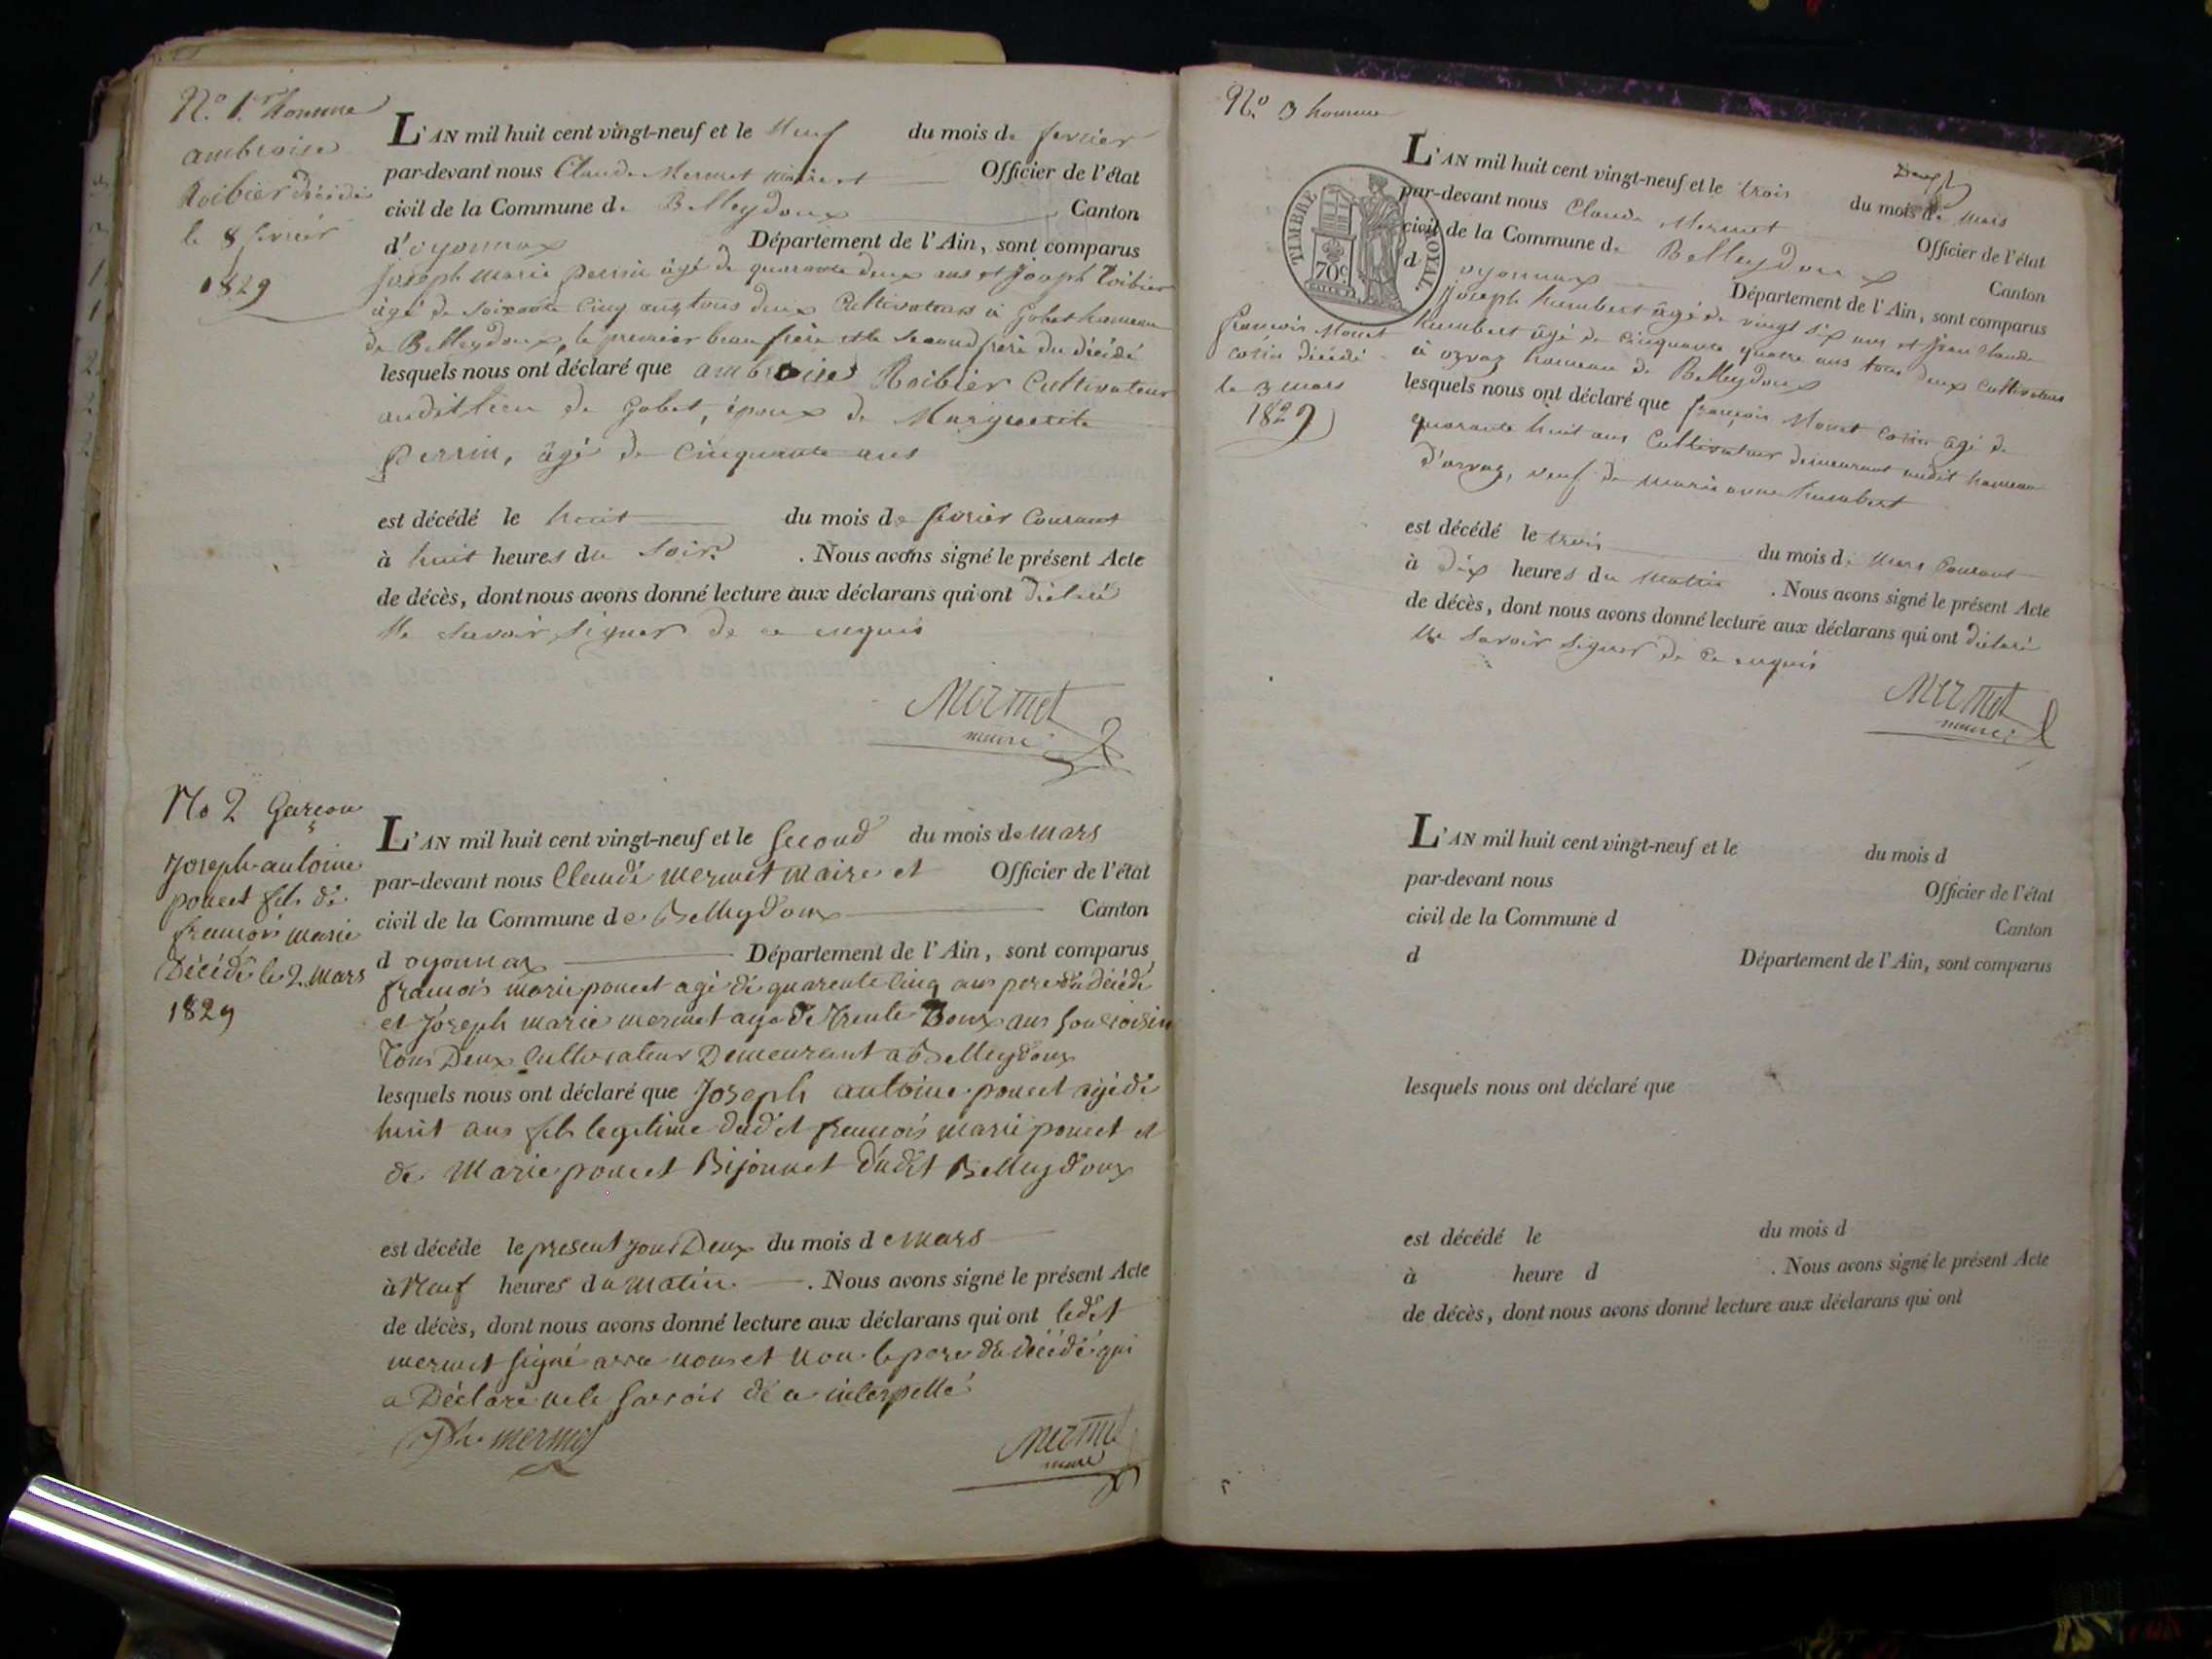 N.o 1.er homme
ambroise
Roibier décédé
le 8 février
1829
L'AN mil huit cent vingt-neuf et le Neuf du mois de février
par-devant nous Claude Mermet maire et Officier de l'état
civil de la Commune de Belleydoux Canton
d'oyonnax Département de l'Ain, sont comparus
Joseph Marie perrin âgé de quarante deux ans et Joseph Roibier
âgé de soixante cinq ans tous deux Cultivateurs à Gobet hameau
de Belleydoux, le premier beau frère et le second frère du décédé
lesquels nous ont déclaré que ambroise Roibier Cultivateur
audit lieu de Gobet, époux de Marguerite
Perrin, âgé de Cinquante ans
est décédé le huit du mois de février Courant
à huit heures du soir. Nous avons signé le présent Acte
de décès, dont nous avons donné lecture aux déclarans qui ont déclaré
Ne savoir signer de ce enquis
Mermet
maire
No 2 Garçon
Joseph antoine
poncet fils de
francois marie
Décédé le 2. mars
1829
L'AN mil huit cent vingt-neuf et le second du mois de mars
par-devant nous Claude mermet maire et Officier de l'état
civil de la Commune de Belleydoux Canton
d oyonnax Département de l'Ain, sont comparus
francois marie poncet agé de quarente cinq ans pere du décédé
et Joseph marie mermet agé de Trente Doux ans son voisin
Tous Deux Cultivateur Demeurant a Belleydoux
lesquels nous ont déclaré que Joseph antoine poncet agé de
huit ans fils legitime dudit francois marie poncet et
de Marie poncet Bijonnet dudit Belleydoux
est décédé le present jour Deux du mois de mars
à Neuf heures du matin. Nous avons signé le présent Acte
de décès, dont nous avons donné lecture aux déclarans qui ont ledit
mermet signé avec nous et non le pere du décédé qui
a Déclaré ne le savoir de ce interpellé
Jh mermet
Mermet
maire
N.o 3 homme
françois Monet
cosin décédé
le 3 mars
1829
TIMBRE ROYAL
70c
L'AN mil huit cent vingt-neuf et le trois du mois de Mars
par-devant nous Claude Mermet Officier de l'état
civil de la Commune de Belleydoux Canton
d oyonnax Département de l'Ain, sont comparus
Joseph humbert âgé de vingt six ans et jean Claude
humbert âgé de cinquante quatre ans tous deux Cultivateurs
à orvaz hameau de Belleydoux
lesquels nous ont déclaré que françois Monet cosin âgé de
quarante huit ans Cultivateur demeurant audit hameau
d'orvaz, veuf de marie anne humbert
est décédé le trois du mois de Mars Courant
à dix heures du Matin. Nous avons signé le présent Acte
de décès, dont nous avons donné lecture aux déclarans qui ont déclaré
Ne savoir signer de ce enquis
Mermet
maire
L'AN mil huit cent vingt-neuf et le du mois d
par-devant nous Officier de l'état
civil de la Commune d Canton
d Département de l'Ain, sont comparus
lesquels nous ont déclaré que
est décédé le du mois d
à heure d . Nous avons signé le présent Acte
de décès, dont nous avons donné lecture aux déclarans qui ont